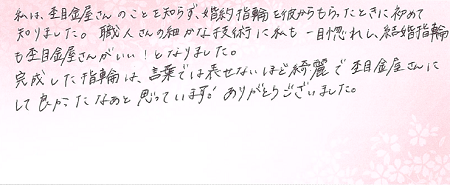 私は、杢目金屋さんのことを知らず、婚約指輪を彼からもらったときに初めて
知りました。職人さんの細かな技術に私も一目惚れし、結婚指輪
も杢目金屋さんがいい!となりました。
完成した指輪は、言葉では表せないほど綺麗で杢目金屋さんに
して良かったなあと思っています。ありがとうございました。